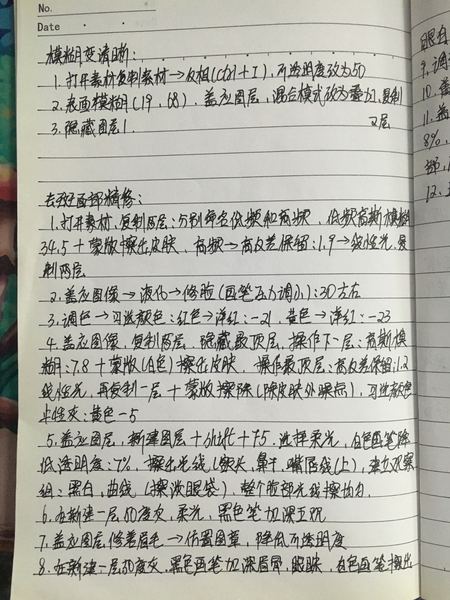 No.
Date
模糊变清晰:
1. 打开素材复制素材→反相(ctrl+I), 不透明度改为50
2. 表面模糊(19, 68). 盖应图层, 混合模式改为叠加, 复制
又层
3. 隐藏图层1.
去斑面部精修:
1. 打开素材. 复制两层: 分别命名低频和高频. 低频高斯模糊
34.5+蒙版擦出皮肤. 高频→高反差保留: 1.9→线性光, 复
制两层
2. 盖应图像→液化→修脸(画笔压力调小): 30左右
3. 调色→可选颜色: 红色→洋红: -21, 黄色→洋红: -23
4. 盖应图像, 复制两层, 隐藏最顶层, 操作下一层: 高斯模
糊: 7.8+蒙版(白色)擦出皮肤, 操作最顶层: 高反差保留: 1.2
线性光, 再复制一层+蒙版擦除(除皮肤外噪点), 可选颜色
中性灰: 黄色-5
5. 盖应图层, 新建图层+shift+F5. 选择柔光, 白色画笔降
低透明度: 7%, 擦出光线(额头, 鼻子, 嘴唇线(上), 建立观察
组: 黑白, 曲线(擦淡眼袋), 整个脸部光线擦均匀.
6. 在新建一层50度灰, 柔光, 黑色笔加深五观
7. 盖应图层修着眉毛→仿制图章, 降低不透明度
8. 在新建一层50度灰, 黑色画笔加深眉部, 眼珠, 白色画笔擦出
眼白
9. 调
10. 盖
11. 盖
8%,
部,
12.